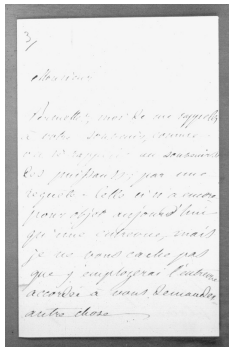 3/
Monsieur,
Permettez moi de me rappeler
à votre souvenir, comme
on se rappelle au souvenir
des puissants; par une
requête. Celle ci n'a encore
pour objet aujourd'hui
qu'une entrevue, mais
je ne vous cache pas
que j'employerai l'entrevue
accordée à vous demander
autre chose.